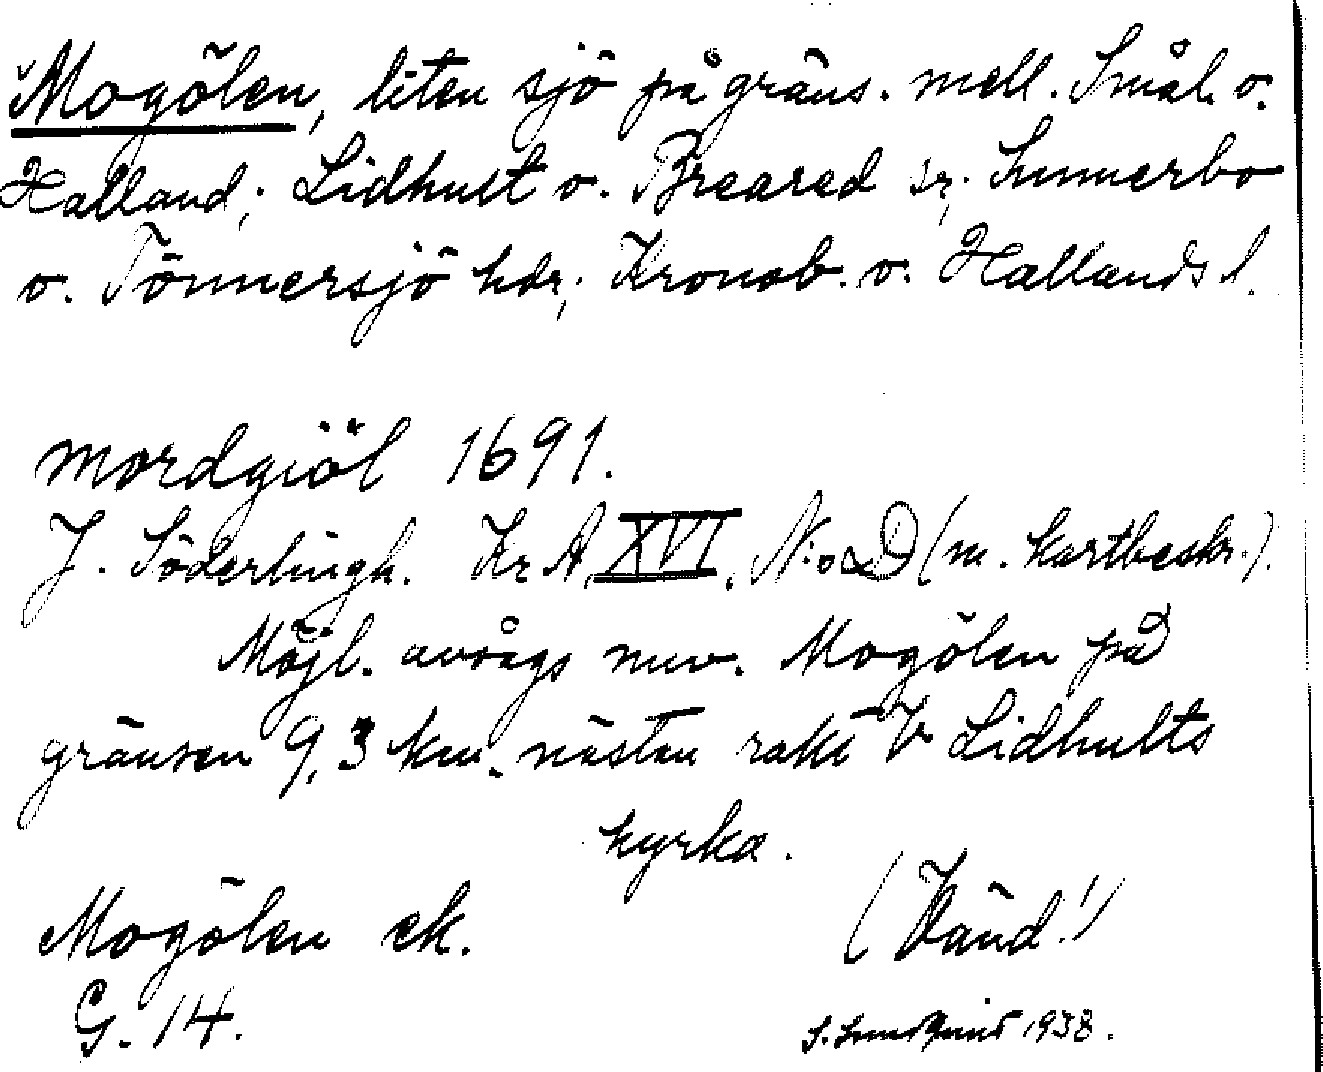 Mogölen, liten sjö på gräns. mell. Smål. o.
Halland; Lidhult o. Breared sr; Sunnerbo
o. Tönnersjö hdr; Kronob. o. Hallands l.
mordgiöl 1691.
J. Söderlingh. Kr A XVI. N:o 2 (m. kartbeskr.).
Möjl. avsågs nuv. Mogölen på
gränsen 9,3 km. nästan rakt V Lidhults
kyrka.
Mogölen ek. (Vänd!)
G. 14. S. Sundquist 1938.